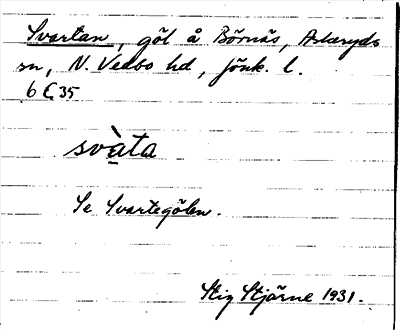 Svartan, göl å Börnäs, Askeryds
sn, N. Vedbo hd, Jönk. l.
6 Ç 35
svàta
Se Svartegölen.
Stig Stjärne 1931.